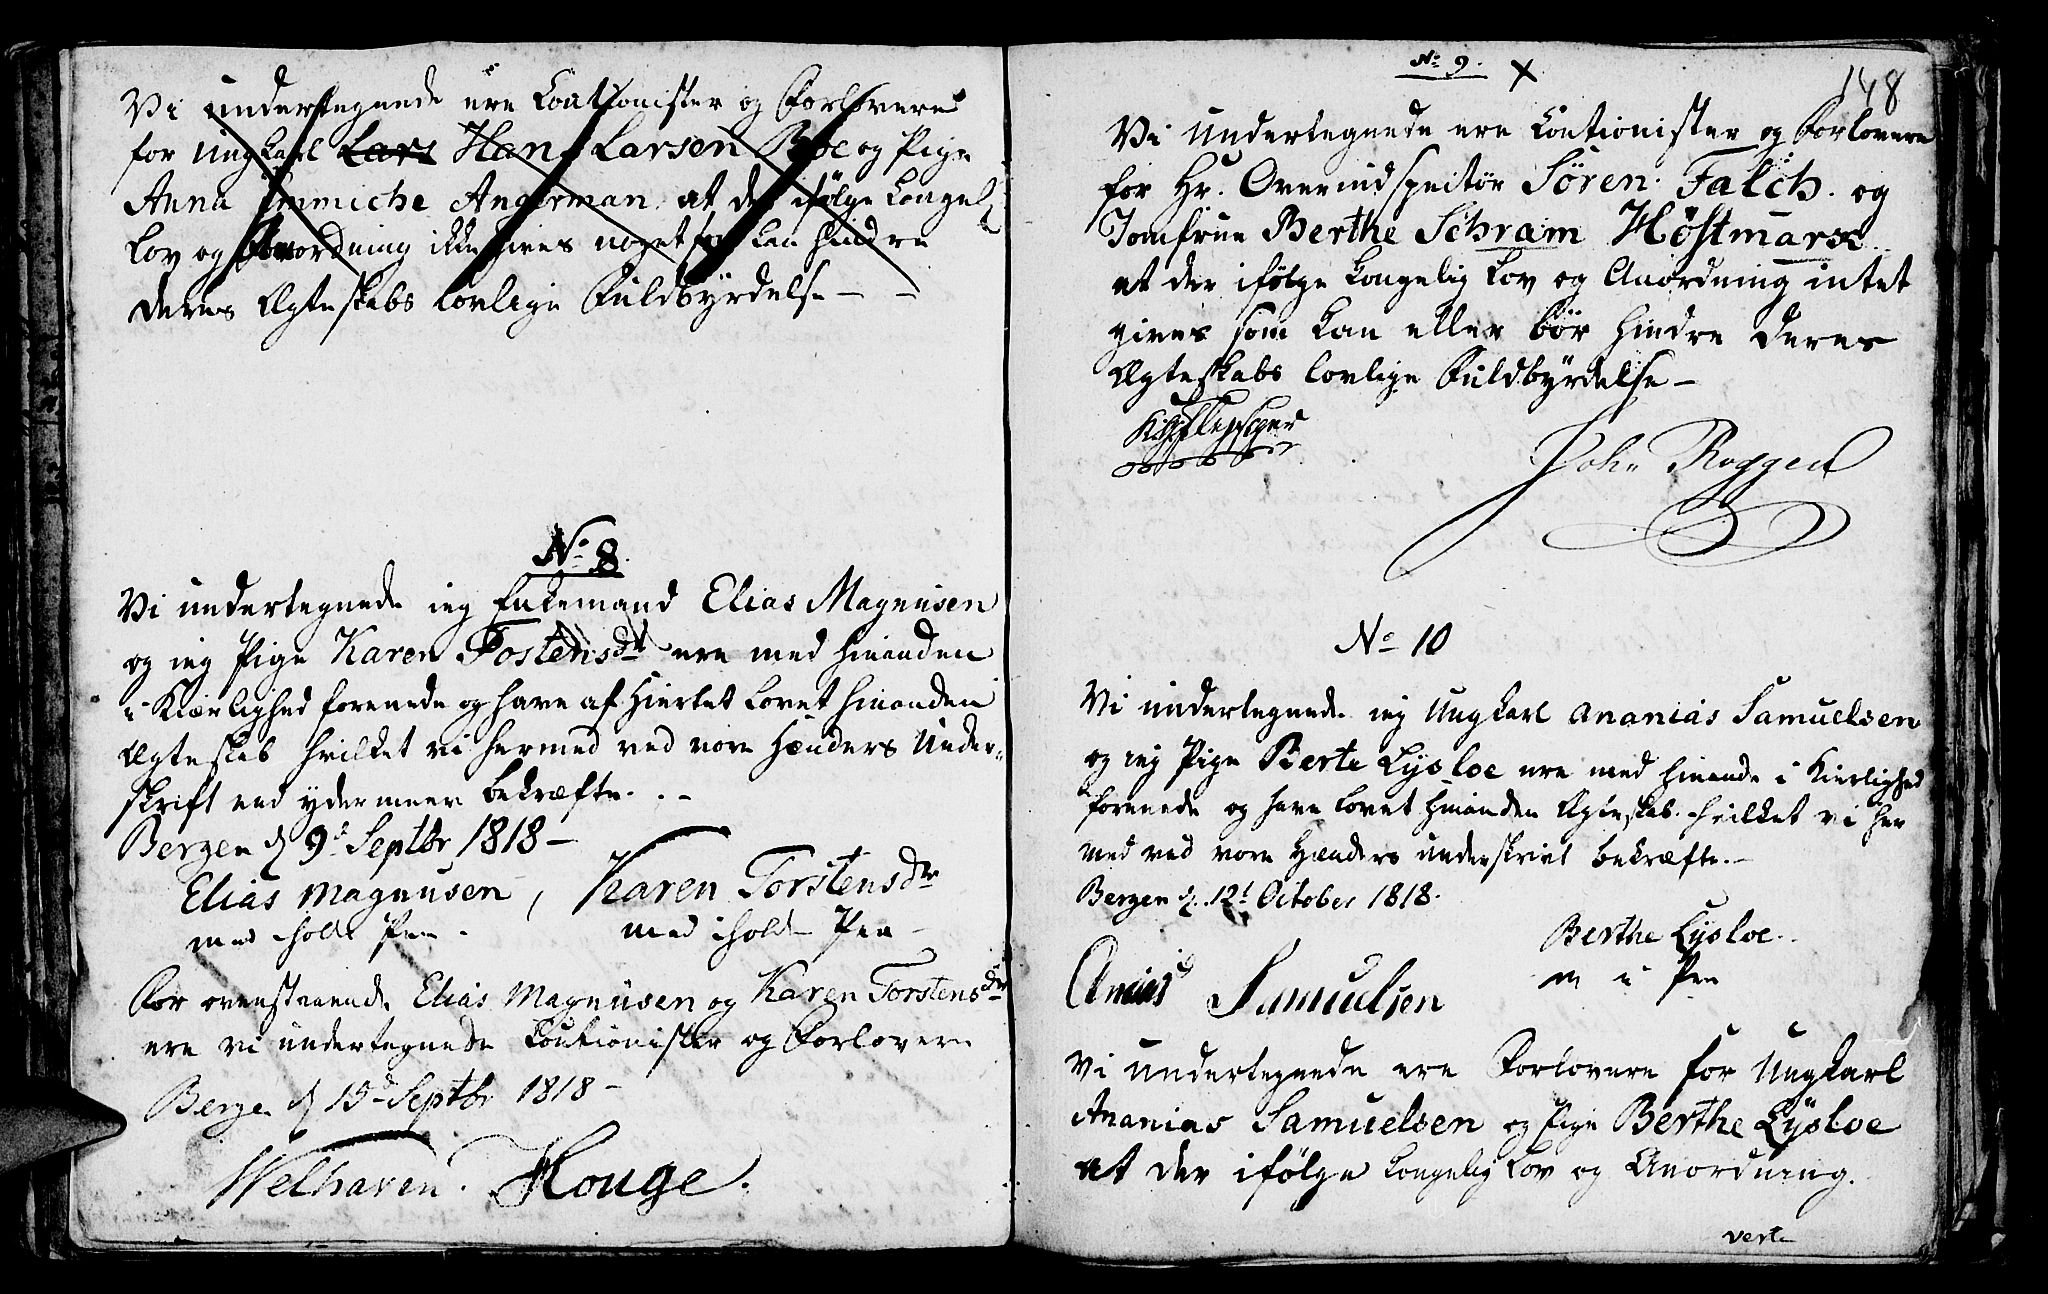 Vi undertegnede ere Coutionister og Forlovere
for Ungkarl Lars Hans Larsen Boe og Pige
Anna Emmiche Angerman at der ifølge Kongel.
Lov og Anordning ikke gives noget som kan hindre
deres Ægteskabs lovlige Fuldbyrdelse —
No 8
Vi undertegnede jeg Enkemand Elias Magnusen
og jeg Pige Karen Tostensdr ere med hinanden
i Kiærlighed forenede og have af Hiertet lovet hinanden
Ægteskab hvilket vi hermed ved vore Hænders Under-
skrift end ydermeer bekræfte. —
Bergen d 9d Septbr 1818 —
Elias Magnusen, Karen Torstensdr
med ihold Pen. med ihold Pen —
For ovenstaaende Elias Magnusen og Karen Torstensdr
ere vi undertegnede Coutionister og Forlovere
Bergen d 15d Septbr 1818 —
Welhaven. Houge.
No 9. x
148
Vi undertegnede ere Coutionister og Forlovere
for Hr. Overindspectør Søren Falch. og
Jomfrue Berthe Schram Høstmark
at der ifølge Kongelig Lov og Anordning intet
gives som kan eller bør hindre deres
Ægteskabs lovlige Fuldbyrdelse —
John Roggen
No 10
Vi undertegnede jeg Ungkarl Ananias Samuelsen
og jeg Pige Berte Lysloe ere med hinande i Kierlighed
forenede og have lovet hinanden Ægteskab. hvilket vi her
med ved vore Hænders underskrivt bekræfte. —
Bergen d. 12t October 1818.
Berthe Lysloe.
m i Pen
Anias Samuelsen
Vi undertegnede ere Forlovere for Ungkarl
Ananias Samuelsen og Pige Berthe Lysloe
at der ifølge Kongelig Lov og Anordning.
verte